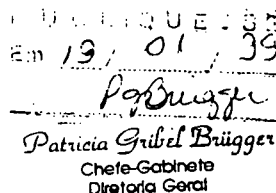 PUBLIQUE-SE
Em 19 / 01 / 99
Patricia Gribel Brügger
Chefe-Gabinete
Diretoria Geral